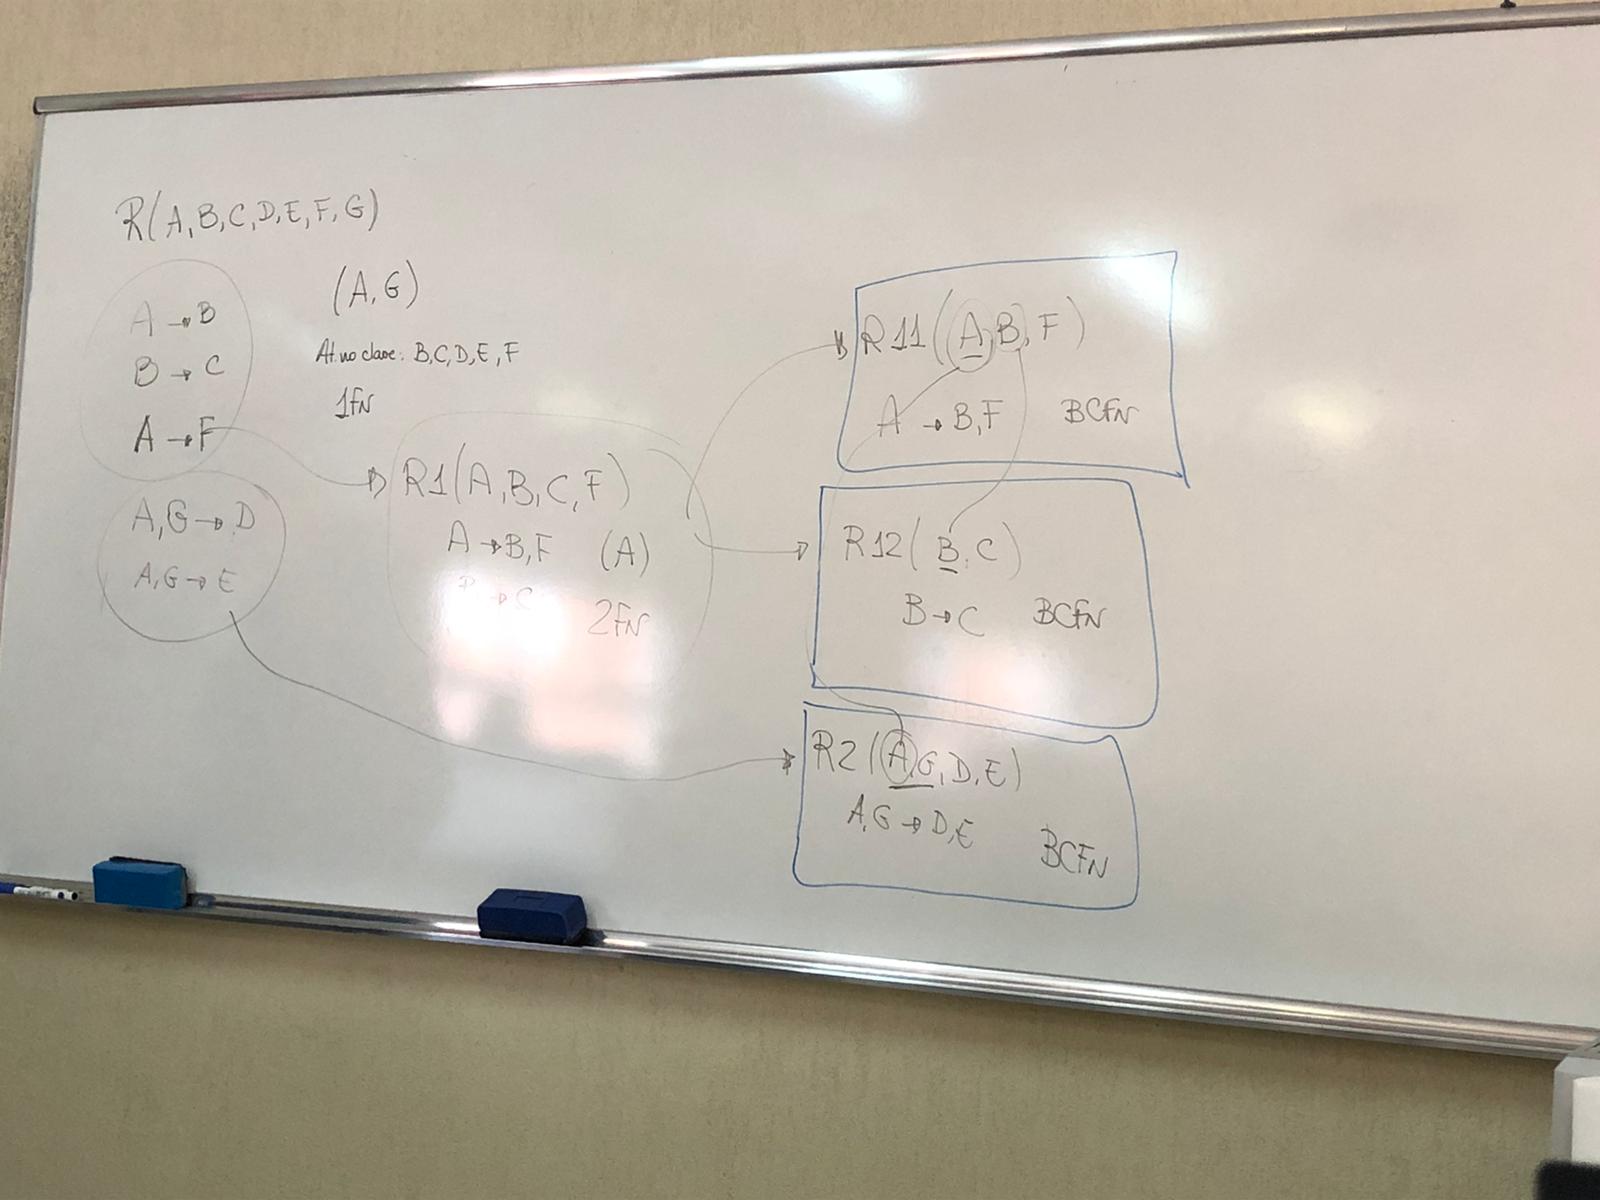 R(A,B,C,D,E,F,G)
A → B
B → C
A → F
A,G → D
A,G → E
(A,G)
At. no clave: B,C,D,E,F
1FN
R1(A,B,C,F)
A → B,F (A)
B → C
2FN
R11(A,B,F)
A → B,F BCFN
R12(B,C)
B → C BCFN
R2(A,G,D,E)
A,G → D,E
BCFN